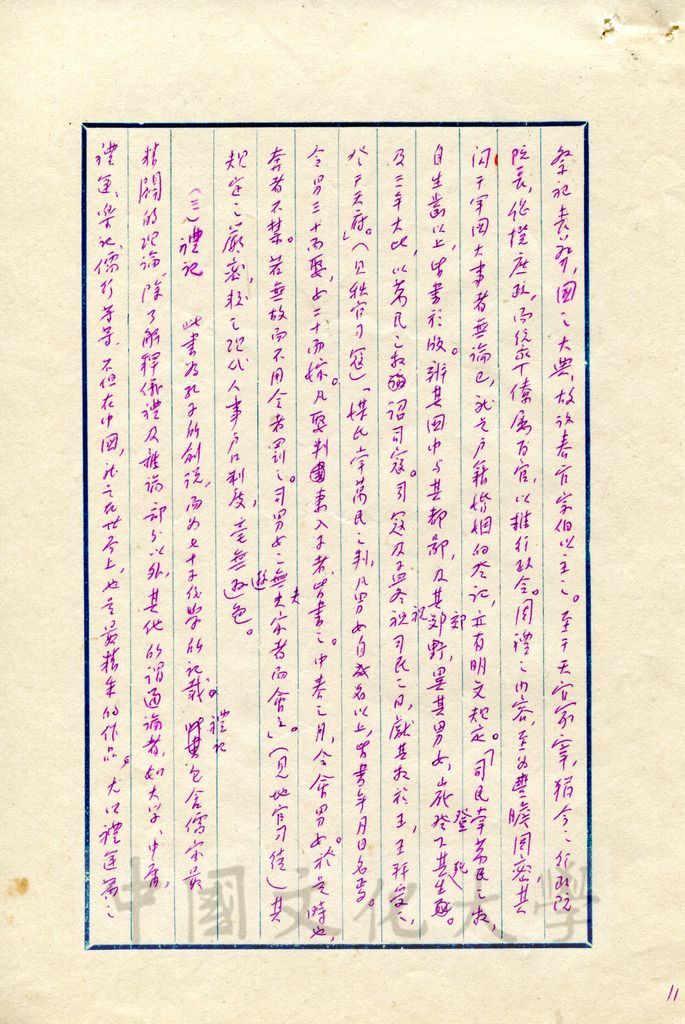 祭祀喪葬，國之大典，故設春官宗伯以主之。至于天官冢宰，猶今之行政院
院長，總揆庶政，而統率下僚屬百官，以推行政令。周禮之內容，至為豐贍周密，其
関于軍國大事者無論已，就是戶籍婚姻的登記，亦有明文規定。「司民掌萬民之數，
自生齒以上，皆書於版。辨其國中與其都鄙，及其郊野，異其男女，歲登下其生死。
及三年大比，以萬民之數詔司寇。司寇及孟冬祀司民之日，獻其數於王，王拜受之，
登于天府。」（見秋官司寇）「媒氏掌萬民之判，凡男女自成名以上，皆書年月日名焉。
令男三十而娶，女二十而嫁。凡娶判妻入子者，皆書之。中春之月，令會男女。於是時也，
奔者不禁。若無故而不用令者罰之。司男女之無夫家者而會之。」（見地官司徒）其
規定之嚴密，較之現代人事戶口制度，毫無遜色。
（三）禮記　此書為孔子所創說，而為七十子後學所記載。禮記包含儒家最
精闢的理論，除了解釋儀禮及雜論部分以外，其他所謂通論者，如大學、中庸，
禮運、樂記、儒行等等，不但在中國，就是在世界上，也是最精采的作品。尤以禮運篇之
中國文化大學
11